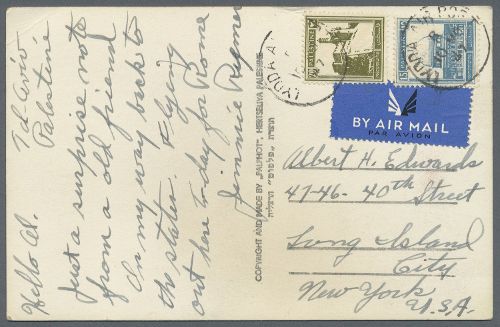 Tel Aviv
Palestine
Hello Al.
Just a surprise note
from a old friend
On my way back to
the states. Flying
out here to-day for Rome
Jimmie Rymer
COPYRIGHT AND MADE BY „PALPHOT", HERTSELIYA PALESTINE
תוצרת "פלפוט" הרצליה
PALESTINE
LYDDA AIR PORT
LYDDA AIR PORT
BY AIR MAIL
PAR AVION
Albert H. Edwards
47-46- 40th Street
Long Island
City
New York
U.S.A.